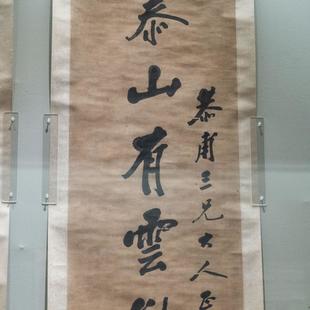 泰山有雲
恭甫三兄大人正